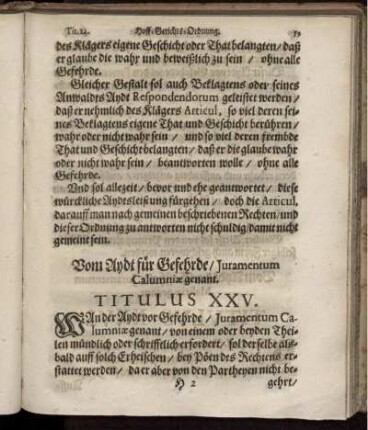 Tit. 24. Hoff-Gerichts-Ordnung. 59
des Klägers eigene Geschicht oder That belangten / daß
er glaube die wahr und beweißlich zu sein / ohne alle
Gefehrde.
Gleicher Gestalt sol auch Beklagtens oder seines
Anwaldts Aydt Respondendorum geleistet werden /
daß er nehmlich des Klägers Articul, so viel deren sei-
nes Beklagtens eigene That und Geschicht berühren /
wahr oder nicht wahr sein / und so viel deren frembde
That und Geschicht belangten / daß er die glaube wahr
oder nicht wahr sein / beantworten wolle / ohne alle
Gefehrde.
Und sol allezeit / bevor und ehe geantwortet / diese
würckliche Aydtsleistung fürgehen / doch die Articul,
darauff man nach gemeinen beschriebenen Rechten / und
dieser Ordnung zu antworten nicht schuldig / damit nicht
gemeint sein.
Vom Aydt für Gefehrde / Juramentum
Calumniæ genant.
TITULUS XXV.
WAn der Aydt vor Gefehrde / Juramentum Ca-
lumniæ genant / von einem oder beyden Thei-
len mündlich oder schriffelich erfordert / sol derselbe als-
bald auff solch Erheischen / bey Pöen des Rechtens er-
stattet werden / da er aber von den Partheyen nicht be-
H 2 gehrt /